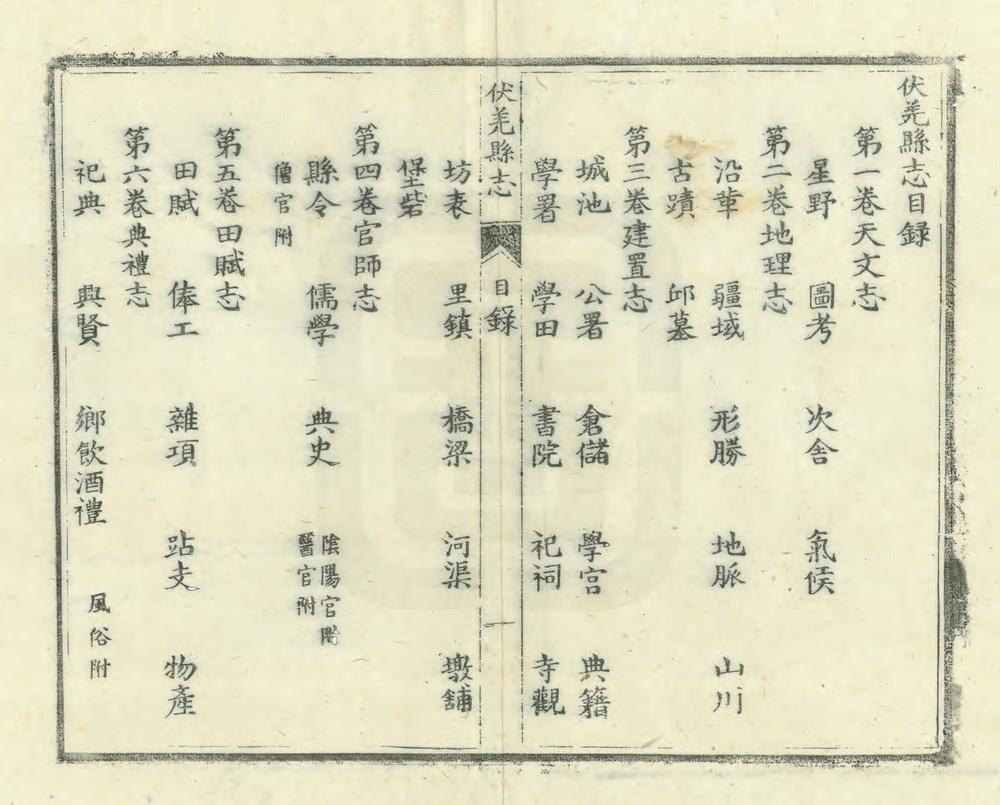 伏羌縣志目錄
第一卷天文志
星野 圖考 次舍 氣候
第二卷地理志
沿革 疆域 形勝 地脈 山川
古蹟 邱墓
第三卷建置志
城池 公署 倉儲 學宮 典籍
學署 學田 書院 祀祠 寺觀
伏羌縣志 目錄 一
坊表 里鎮 橋梁 河渠 墩舖
堡砦
第四卷官師志
縣令 儒學 典史 陰陽官附 醫官附
僧官附
第五卷田賦志
田賦 俸工 雜項 站支 物產
第六卷典禮志
祀典 興賢 鄉飲酒禮 風俗附